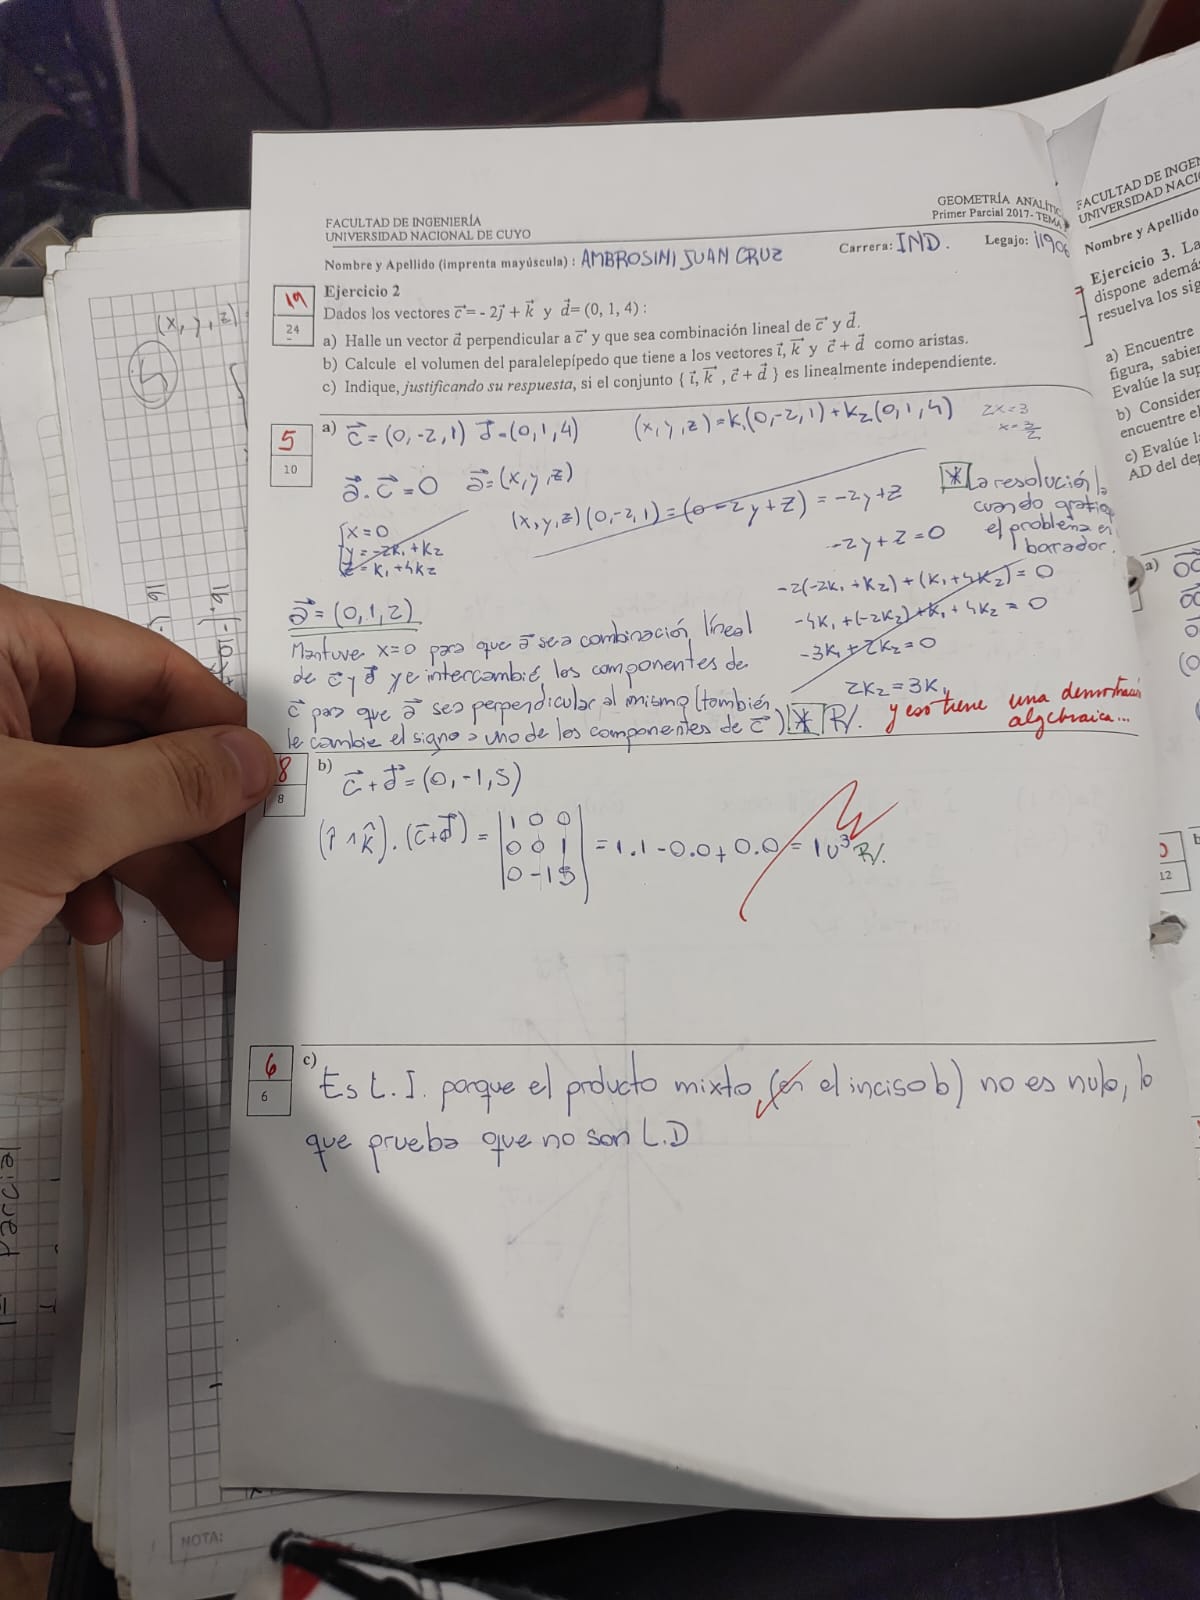 FACULTAD DE INGENIERÍA
UNIVERSIDAD NACIONAL DE CUYO
GEOMETRÍA ANALÍTIC
Primer Parcial 2017- TEMA
Nombre y Apellido (imprenta mayúscula) : AMBROSINI JUAN CRUZ Carrera: IND. Legajo: 11906
19
24
Ejercicio 2
Dados los vectores c⃗ = - 2j⃗ + k⃗ y d⃗= (0, 1, 4) :
a) Halle un vector a⃗ perpendicular a c⃗ y que sea combinación lineal de c⃗ y d⃗.
b) Calcule el volumen del paralelepípedo que tiene a los vectores i⃗, k⃗ y c⃗ + d⃗ como aristas.
c) Indique, justificando su respuesta, si el conjunto { i⃗, k⃗ , c⃗ + d⃗ } es linealmente independiente.
5
10
a) c⃗ = (0,-2,1) d⃗ = (0,1,4) (x,y,z) = k₁(0,-2,1) + k₂(0,1,4)
2x=3
x=3/2
a⃗ . c⃗ = 0 a⃗=(x,y,z)
(x,y,z)(0,-2,1) = (0-2y+z) = -2y+z
x=0
y=-2k₁+k₂
z=k₁+4k₂
-2y+z=0
-2(-2k₁+k₂)+(k₁+4k₂)=0
-4k₁+(-2k₂)+k₁+4k₂=0
-3k₁+2k₂=0
2k₂=3k₁
* La resolución la
cuando grafiq
el problema en
borrador.
a⃗=(0,1,2)
Mantuve x=0 para que a⃗ sea combinación líneal
de c⃗ y d⃗ y e intercambié los componentes de
c⃗ para que a⃗ sea perpendicular al mismo (también
le cambie el signo a uno de los componentes de c⃗). * R/.
y eso tiene una demostración
algebraica...
8
8
b) c⃗ + d⃗ = (0,-1,5)
(î ∧ k̂) . (c⃗+d⃗) = |1 0 0| = 1.1-0.0+0.0 = 1u³ R/.
|0 0 1|
|0 -1 5|
6
6
c) Es L.I. porque el producto mixto, (en el inciso b) no es nulo, lo
que prueba que no son L.D
(x,y,z)
5
Parcial
NOTA:
FACULTAD DE INGE
UNIVERSIDAD NACI
Nombre y Apellido
Ejercicio 3. La
dispone además
resuelva los sig
a) Encuentre
figura, sabien
Evalúe la sup
b) Consider
encuentre el
c) Evalúe l
AD del de
a)
b
12